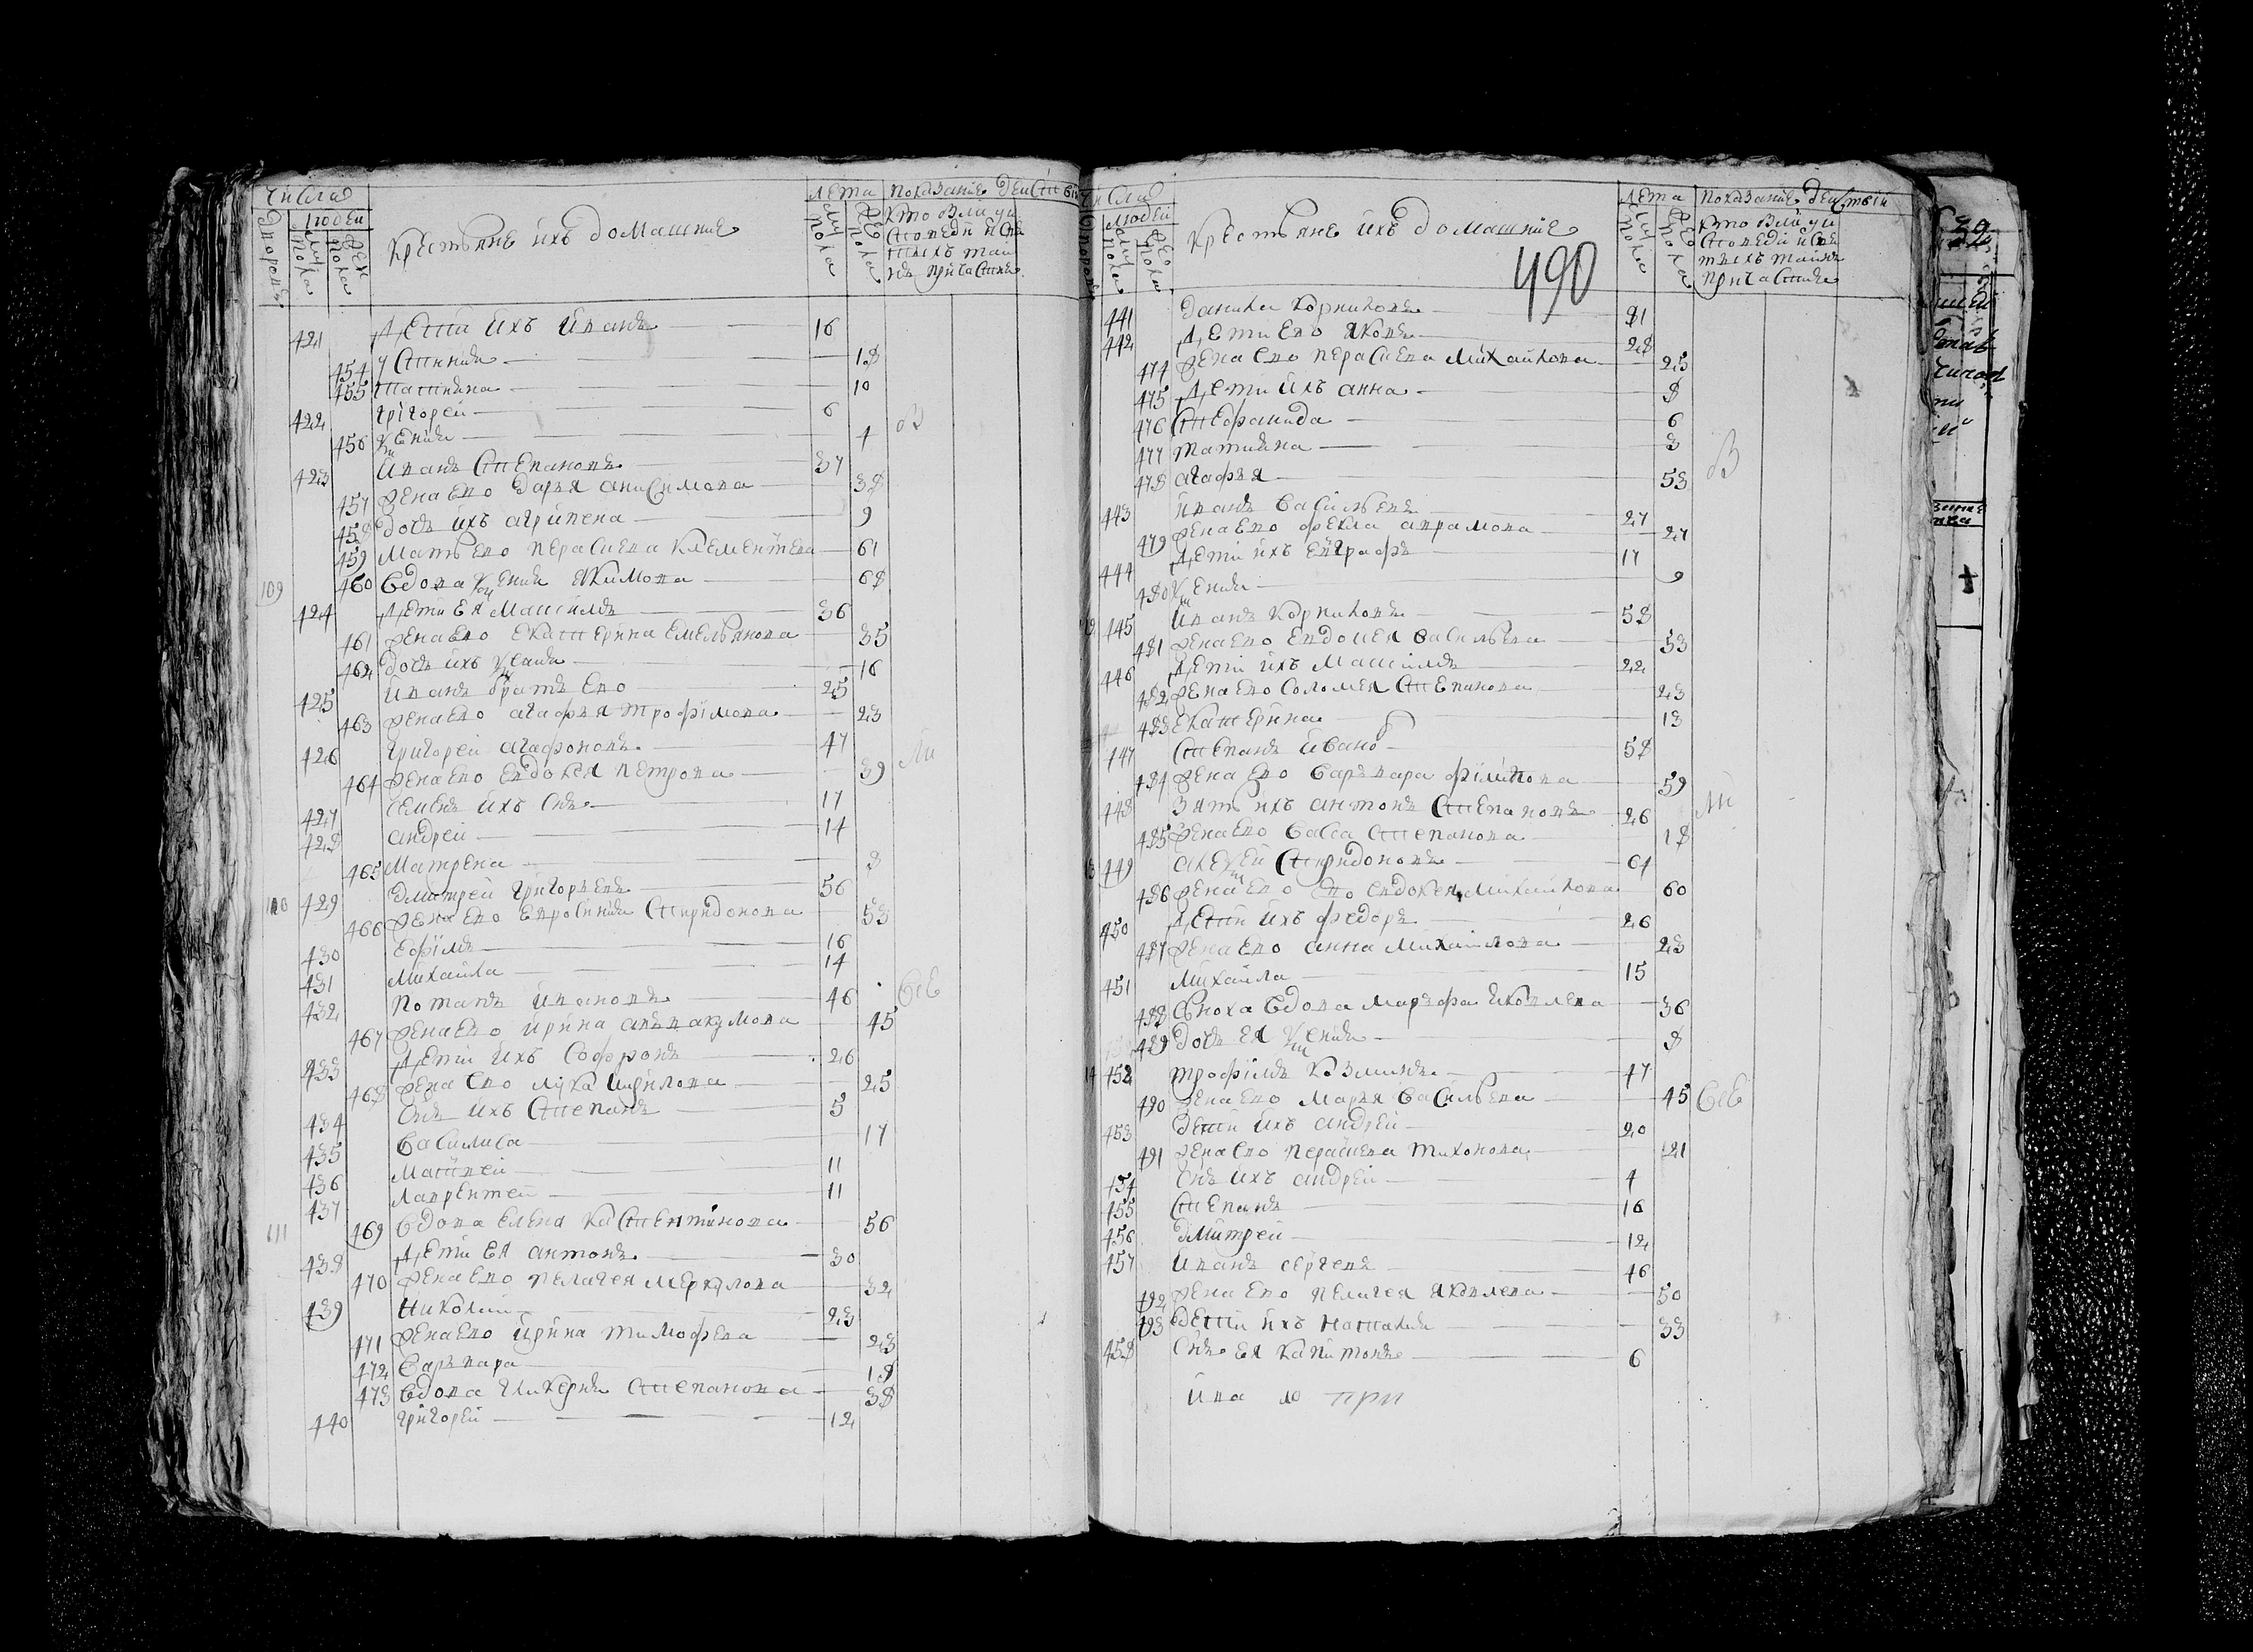 числа
лета показание действи
люди
крестьяне ихъ домашние
дворовъ
муж пола
жен пола
муж пола
жен пола
кто были у и
споведи и свя
тыхъ таи
нъ причастия
421 дети ихъ иванъ 16
454 устиния 18
455 татияна 10
422 григореи 6
456 ксения 4
423 иванъ степановъ 37
457 жена ево дарья анисимова 38
458 дочь ихъ агрипена 9
459 мать ево параскева клементева 61
109 460 вдова ксения якимова 68
424 дети ея максимъ 36
461 жена ево екатерина емельянова 35
462 дочь ихъ ксения 16
425 иванъ братъ ево 25
463 жена ево агафья трофимова 23
426 григореи агафоновъ 47
464 жена ево евдокея петрова 39
427 семенъ ихъ снъ 17
428 андреи 14
465 матрена 8
110 429 дмитреи григорьевъ 56
466 жена ево евросиния спиридонова 53
430 ефимъ 16
431 михаила 14
432 потапъ ивановъ 46
467 жена ево ирина авъвакумова 45
433 дети ихъ софронъ 26
468 жена ево 25
434 снъ ихъ степанъ 5
435 василиса 17
436 матвеи 11
437 лаврентеи 11
111 469 вдова елена кастентинова 56
438 дети ея антонъ 30
470 жена ево пелагея меркулова 32
439 николаи 23
471 жена ево ирина тимофева 23
472 варъвара 18
473 вдова гликерия степанова 38
440 григореи 12
числа
лета показание действи
людей
крестьяне ихъ домашние
кто были у и
споведи и свя
тыхъ таинъ
причастия
490
441 данила корниловъ 81
442 дети ево яковъ 28
474 жена ево параскева михаилова 25
475 дети ихъ анна 8
476 стефанида 6
477 татияна 3
478 агафья 53
443 иванъ васильевъ 27
479 жена ево фекла аврамова 27
444 дети ихъ евграфъ 17
480 ксения 9
445 иванъ корниловъ 58
481 жена ево евдокея васильева 53
446 дети ихъ максимъ 22
482 жена ево соломея степанова 23
483 екатерина 13
447 степанъ ивано 58
484 жена ево варъвара филипова 59
448 зять ихъ антонъ степановъ 26
485 жена ево васса степанова 18
449 алексеи спиридоновъ 61
486 жена ево ево евдокея михаилова 60
450 дети ихъ федоръ 26
487 жена ево анна михаилова 23
451 михаила 15
488 сноха вдова марфа яковлева 36
489 дочь ея ксения 8
452 трофимъ козминъ 47
490 жена ево марья васильева 45
453 дети ихъ андреи 20
491 жена ево параскева тихонова 21
454 снъ ихъ андреи 4
455 степанъ 16
456 дмитреи 12
457 иванъ сергеевъ 46
492 жена ево пелагея яковлева 50
493 дети ихъ наталия 33
458 снъ ея капитонъ 6